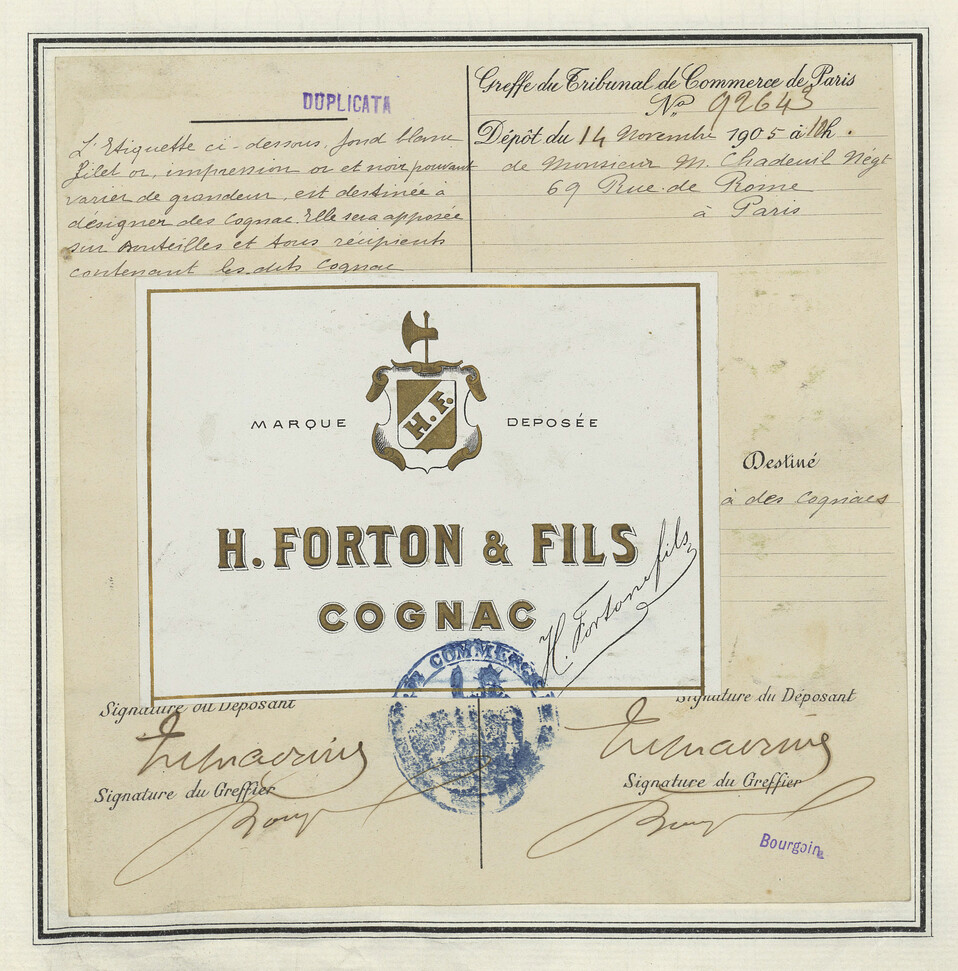 DUPLICATA
L'Etiquette ci-dessous, fond blanc
filet or, impression or et noir, pouvant
varier de grandeur, est destinée à
désigner des Cognac. Elle sera apposée
sur Bouteilles et tous récipients
contenant les dits Cognac
Greffe du Tribunal de Commerce de Paris
No 92643
Dépôt du 14 Novembre 1905 à 10h.
de Monsieur M. Chadeuil Négt
69 Rue de Rome
à Paris
MARQUE DEPOSÉE
H.F.
H. FORTON & FILS
COGNAC
H. Forton & fils
Destiné
à des Cognacs
COMMERCE
Signature du Déposant
Signature du Greffier
Signature du Déposant
Signature du Greffier
Bourgoin